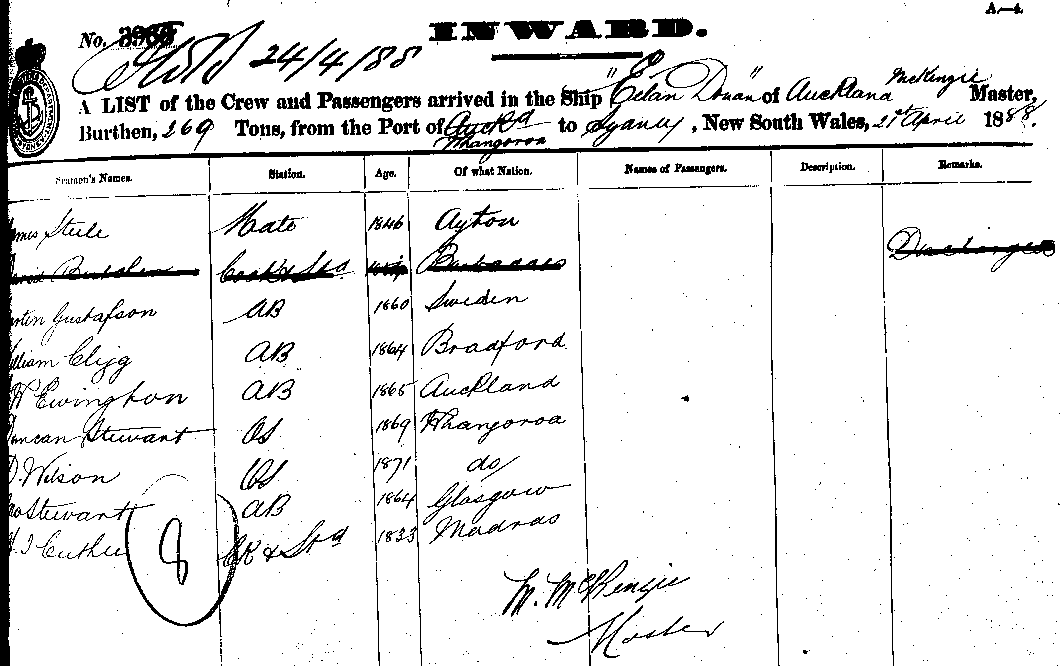 A.—4.
No. 3966
INWARD.
24/4/88
A LIST of the Crew and Passengers arrived in the Ship "Eilan Donan" of Auckland McKenzie Master,
Burthen, 269 Tons, from the Port of Auckd Whangaroa to Sydney, New South Wales, 21st April 1888.
Seamen's Names. Station. Age. Of what Nation. Names of Passengers. Description. Remarks.
Steele Mate 1846 Ayton
Cook & Std Barbadoes Discharged
Gustafson AB 1860 Sweden
William Clegg AB 1864 Bradford
H Ewington AB 1865 Auckland
Duncan Stewart OS 1869 Whangaroa
D. Wilson OS 1871 do
Stewart AB 1864 Glasgow
Ck & Std 1833 Madras
8
M. McKenzie
Master